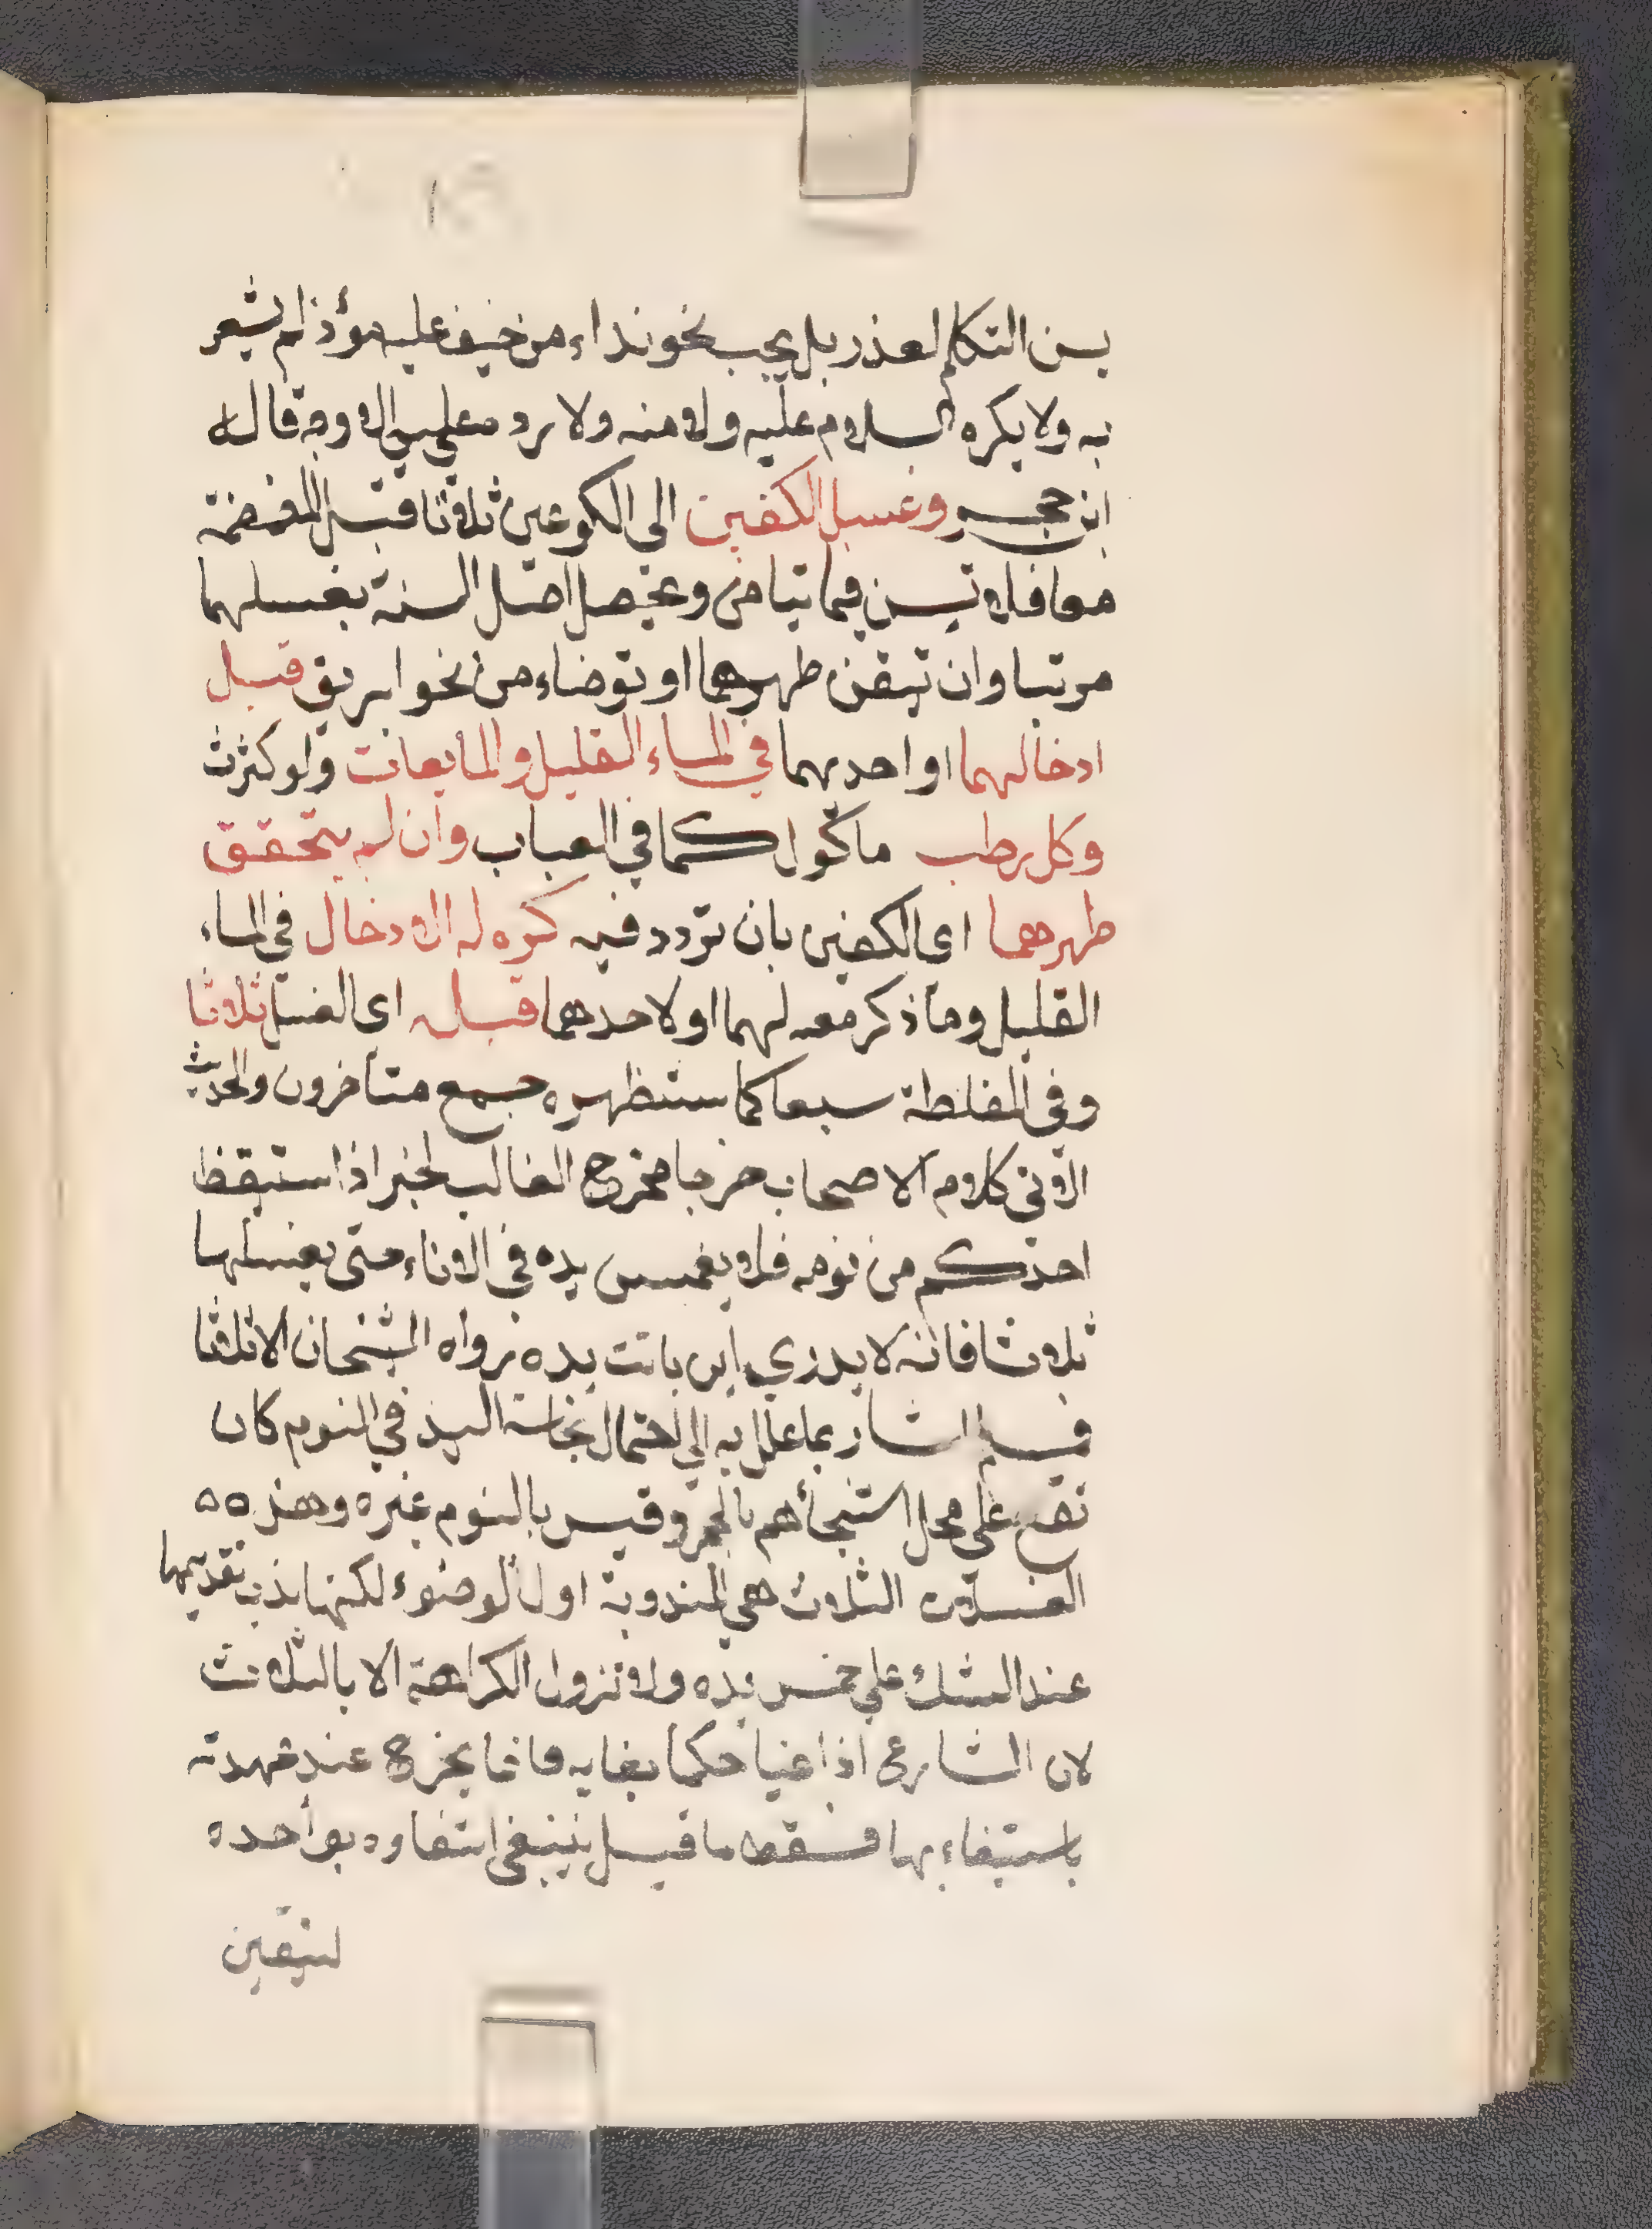 يسن التكلم لعذر بل يجب نحو نداء من خيف عليه مؤذ لم يشعر
به ولا يكره السلام عليه ولا منه ولا رد معلي الاوجه قاله
ابن حجر وغسل الكفين الي الكوعين ثلاثا قبل المضمضة
معا فلا تسن فيما تيامن ويحصل اصل السنة بغسلهما
مرتبا وان تيقن طهرهما او توضاء من نحو ابريق قبل
ادخالهما او احديهما في الماء القليل والمايعات ولو كثرت
وكل رطب ماكول كما في العباب وان لم يتحقق
طهرهما اي الكفين بان تردد فيه كره له الادخال في الماء
القليل وما ذكر معه لهما او لاحدهما قبله اي الغسل ثلاثا
وفي المغلظة سبعا كما ستظهره جمع متاخرون والحديث
الاتي كلام الاصحاب خرجا مخرج الغالب لخبر اذا ستيقظ
احدكم من نومه فلا يغمس يده في الاناء حتي يغسلها
ثلاثا فانه لا يدري اين باتت يده رواه الشيخان الا ثلاثا
فمسلم اشار بما علل به الي احتمال نجاسة اليد في النوم كان
تقع علي محل استنجائهم بالحجر وقيس بالنوم غيره وهذه
الغسلات الثلاث هي المندوبة اول الوضوء لكنها ندب تقديمها
عند الشك علي غمس يده ولا تزول الكراهة الا بالثلاث
لان الشارع اذا غيا حكما بغايه فانما يخرج عند عهدته
باستيفاء بها فسقط ما قيل ينبغي انتفاوه بواحده
لتيقن